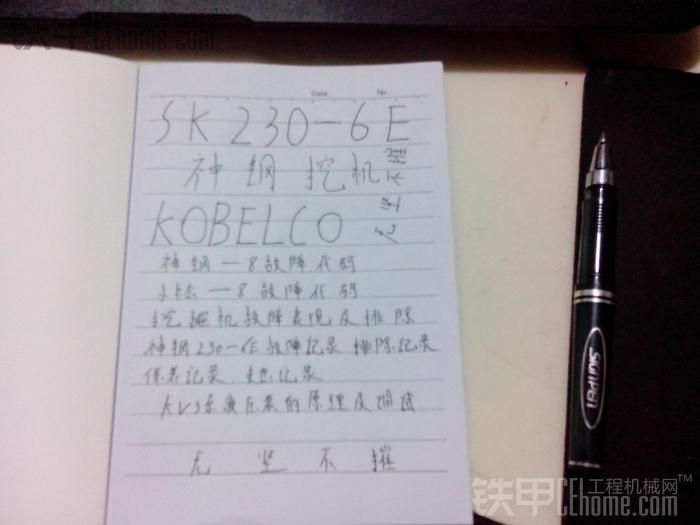 铁甲 CEhome.com
Date.
No.
SK230-6E
神钢挖机
KOBELCO
无坚不摧
神钢-8故障代码
-8故障代码
挖掘机故障表现及排除
神钢230-6E故障记录 排除记录
保养记录
系液压泵的原理及调试
无坚不摧
SIGNPEN
铁甲工程机械网
CEhome.com